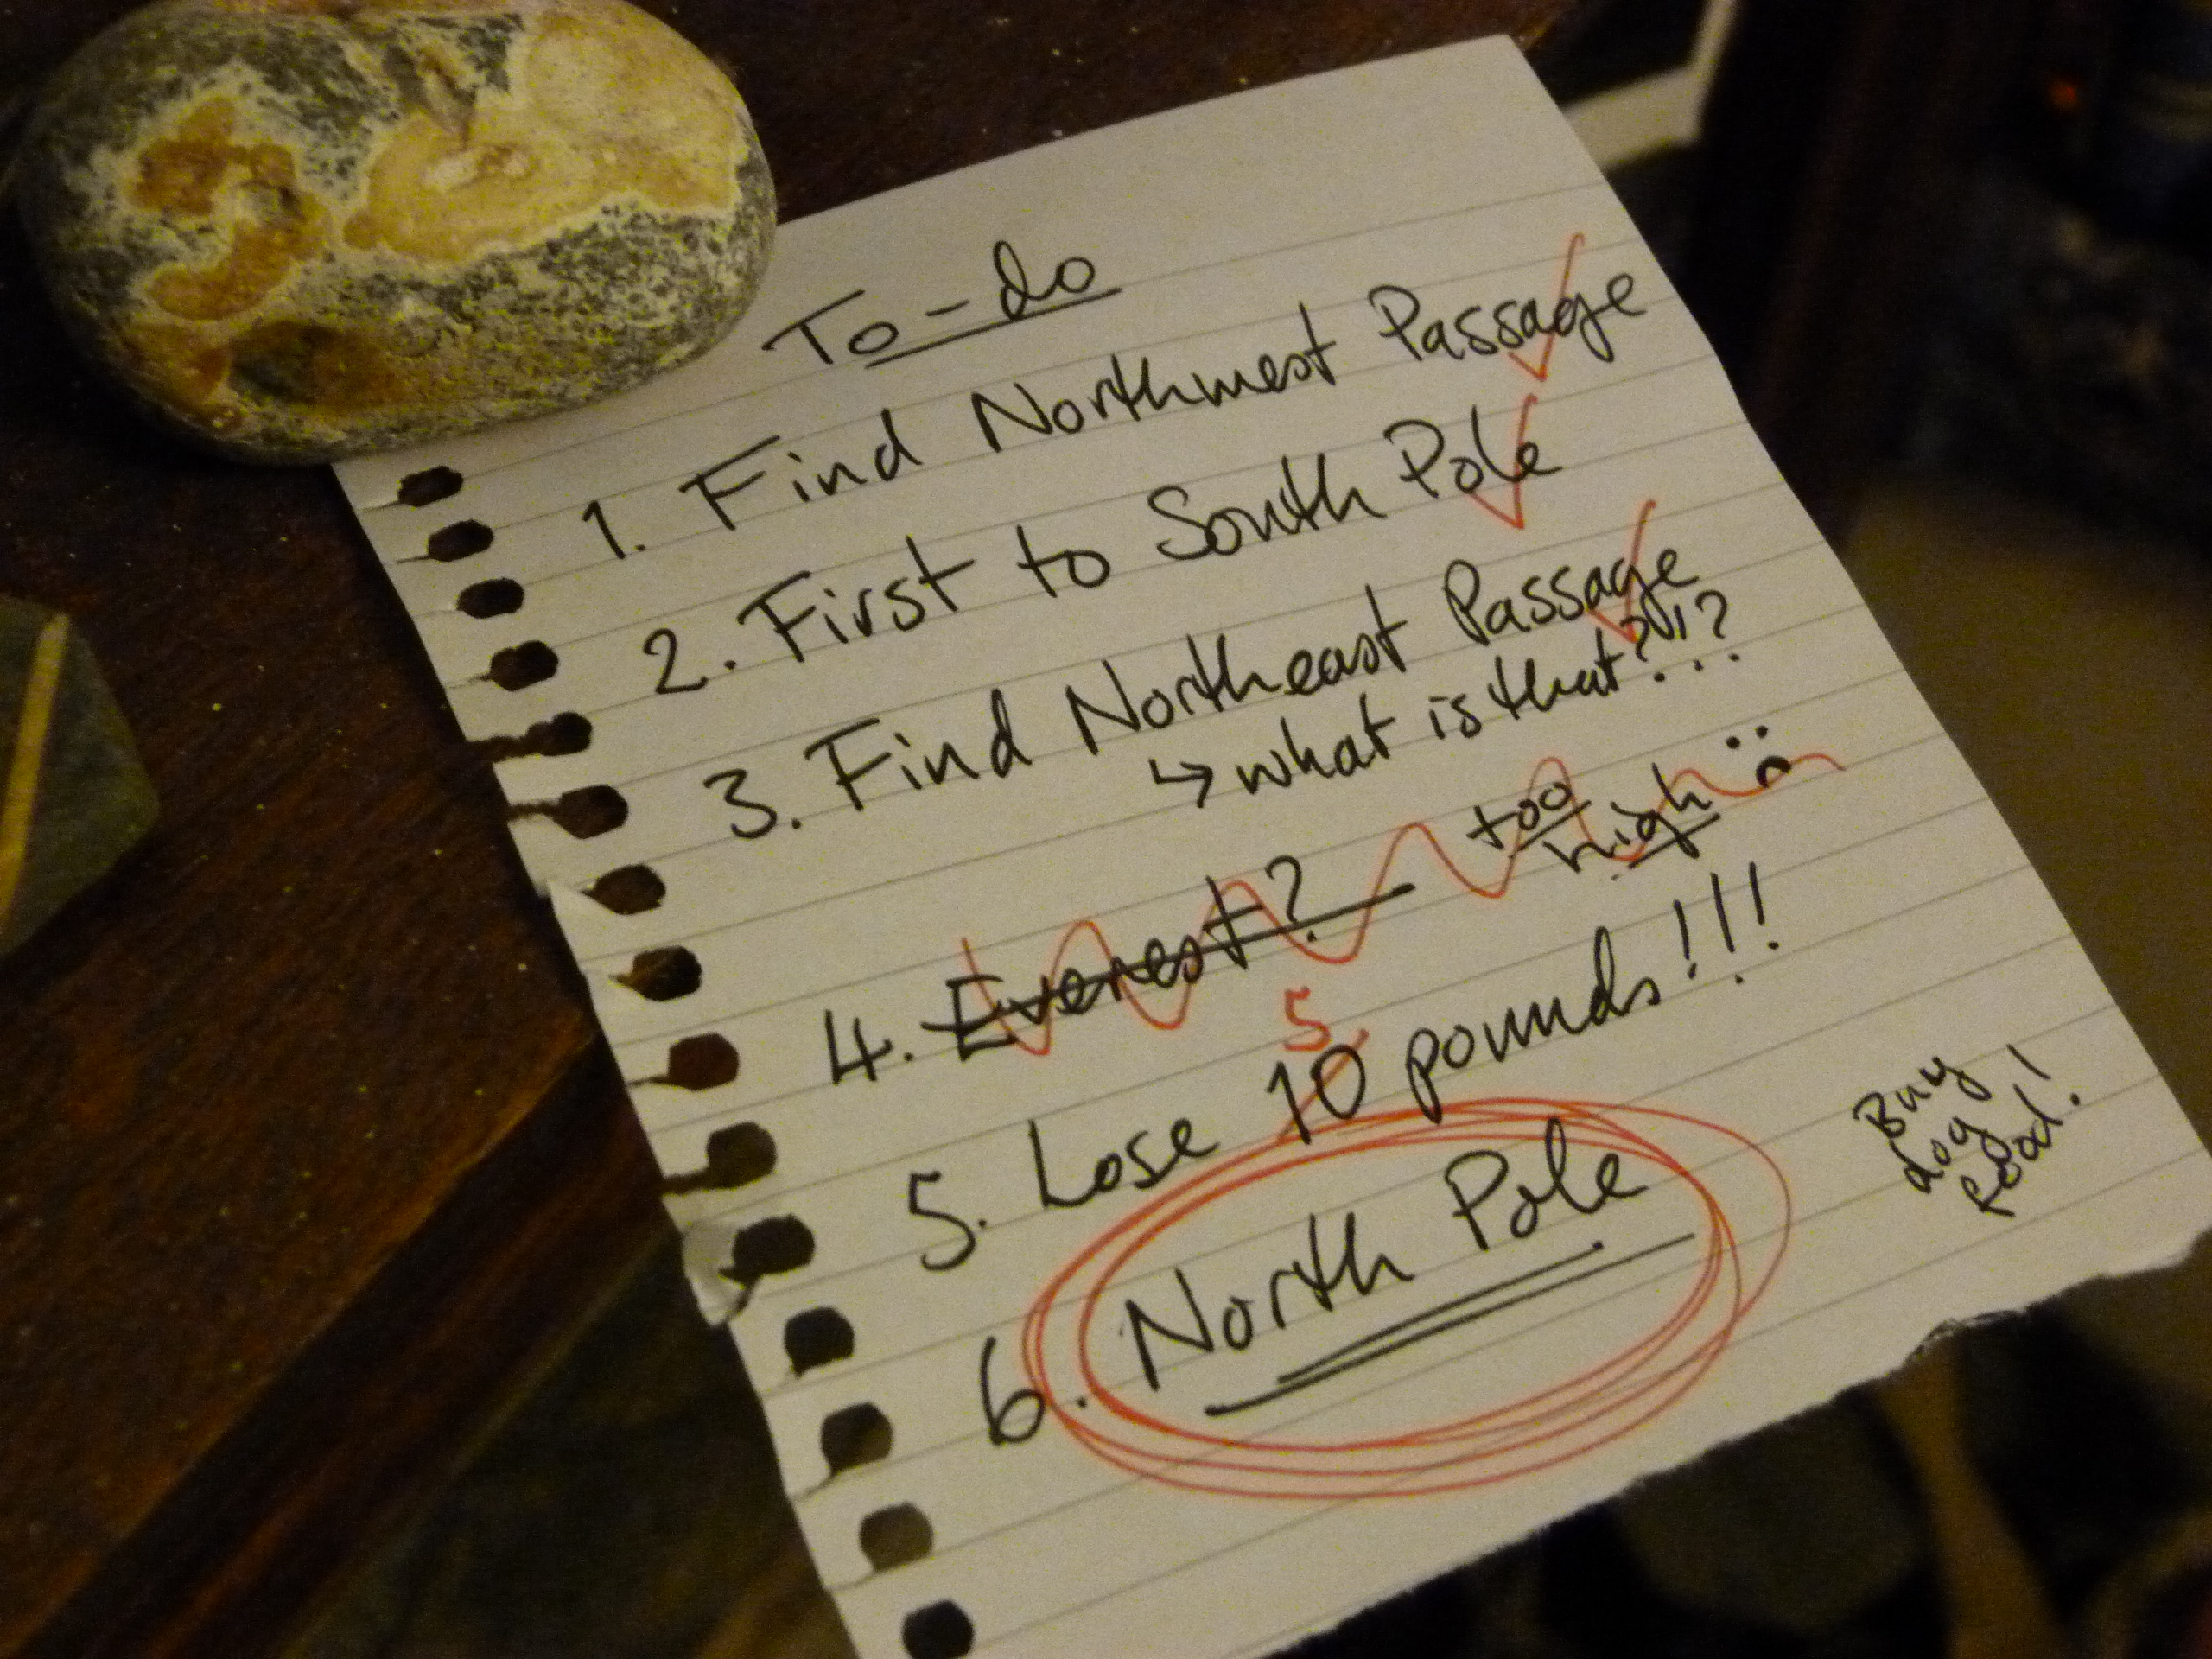 To-do
1. Find Northwest Passage ✓
2. First to South Pole ✓
3. Find Northeast Passage ✓
↳ what is that?!?
4. Everest? too
high :(
5
5. Lose 10 pounds!!!
6. North Pole
Buy
dog
food!